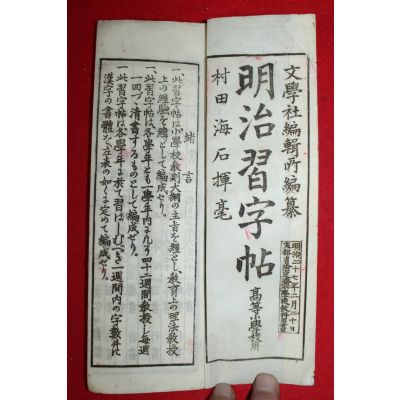 文學社編輯所編纂
明治習字帖
高等小學校用
明治二十七年二月二十日
村田海石揮毫
緒言
一、此習字帖は小學校教則大綱の主旨を經とし教育上の理法教授
上の經驗を緯として編成せり。
一、此習字帖は各學年とも一學年内を凡そ四十二週間教授し毎週
一回づゝ清書するものとして編成せり。
一、此習字帖は各學年に於て習はしむべき一週間内の字數并に
漢字の書體を左表の如くに定めて編成せり。